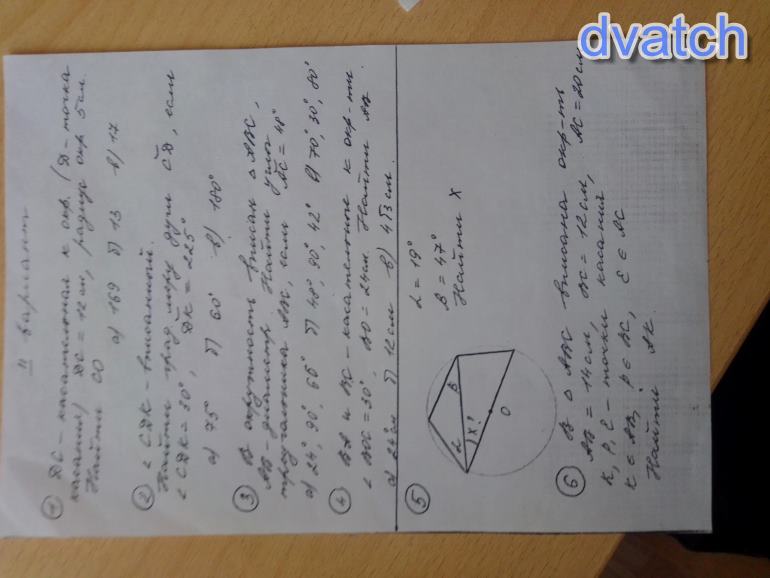 dvatch
II вариант
① DC – касательная к окр. (D – точка
касания) DC = 12 см, радиус окр 5 см.
Найти CO
а) 169 б) 13 в) 17
② ∠ CDK – вписанный.
Найти град. меру дуги CD, если
∠ CDK = 30°, DK = 225°
а) 75° б) 60° в) 180°
③ В окружность вписан △ ABC,
AB – диаметр. Найти углы
треугольника ABC, если AC = 48°
а) 24°, 90°, 66° б) 48°, 90°, 42° в) 70°, 30°, 80°
④ BA и BC – касательные к окр-ти.
BO = 24 см. Найти AB
а) 24 см б) 12 см в) 4√3 см.
⑤
α = 19°
β = 47°
Найти X
α
β
X?
O
⑥ В △ ABC вписана окр-ть
AB = 14 см, BC = 12 см, AC = 20 см
K, P, E – точки касания
K ∈ AB, P ∈ BC, E ∈ AC
Найти AK.